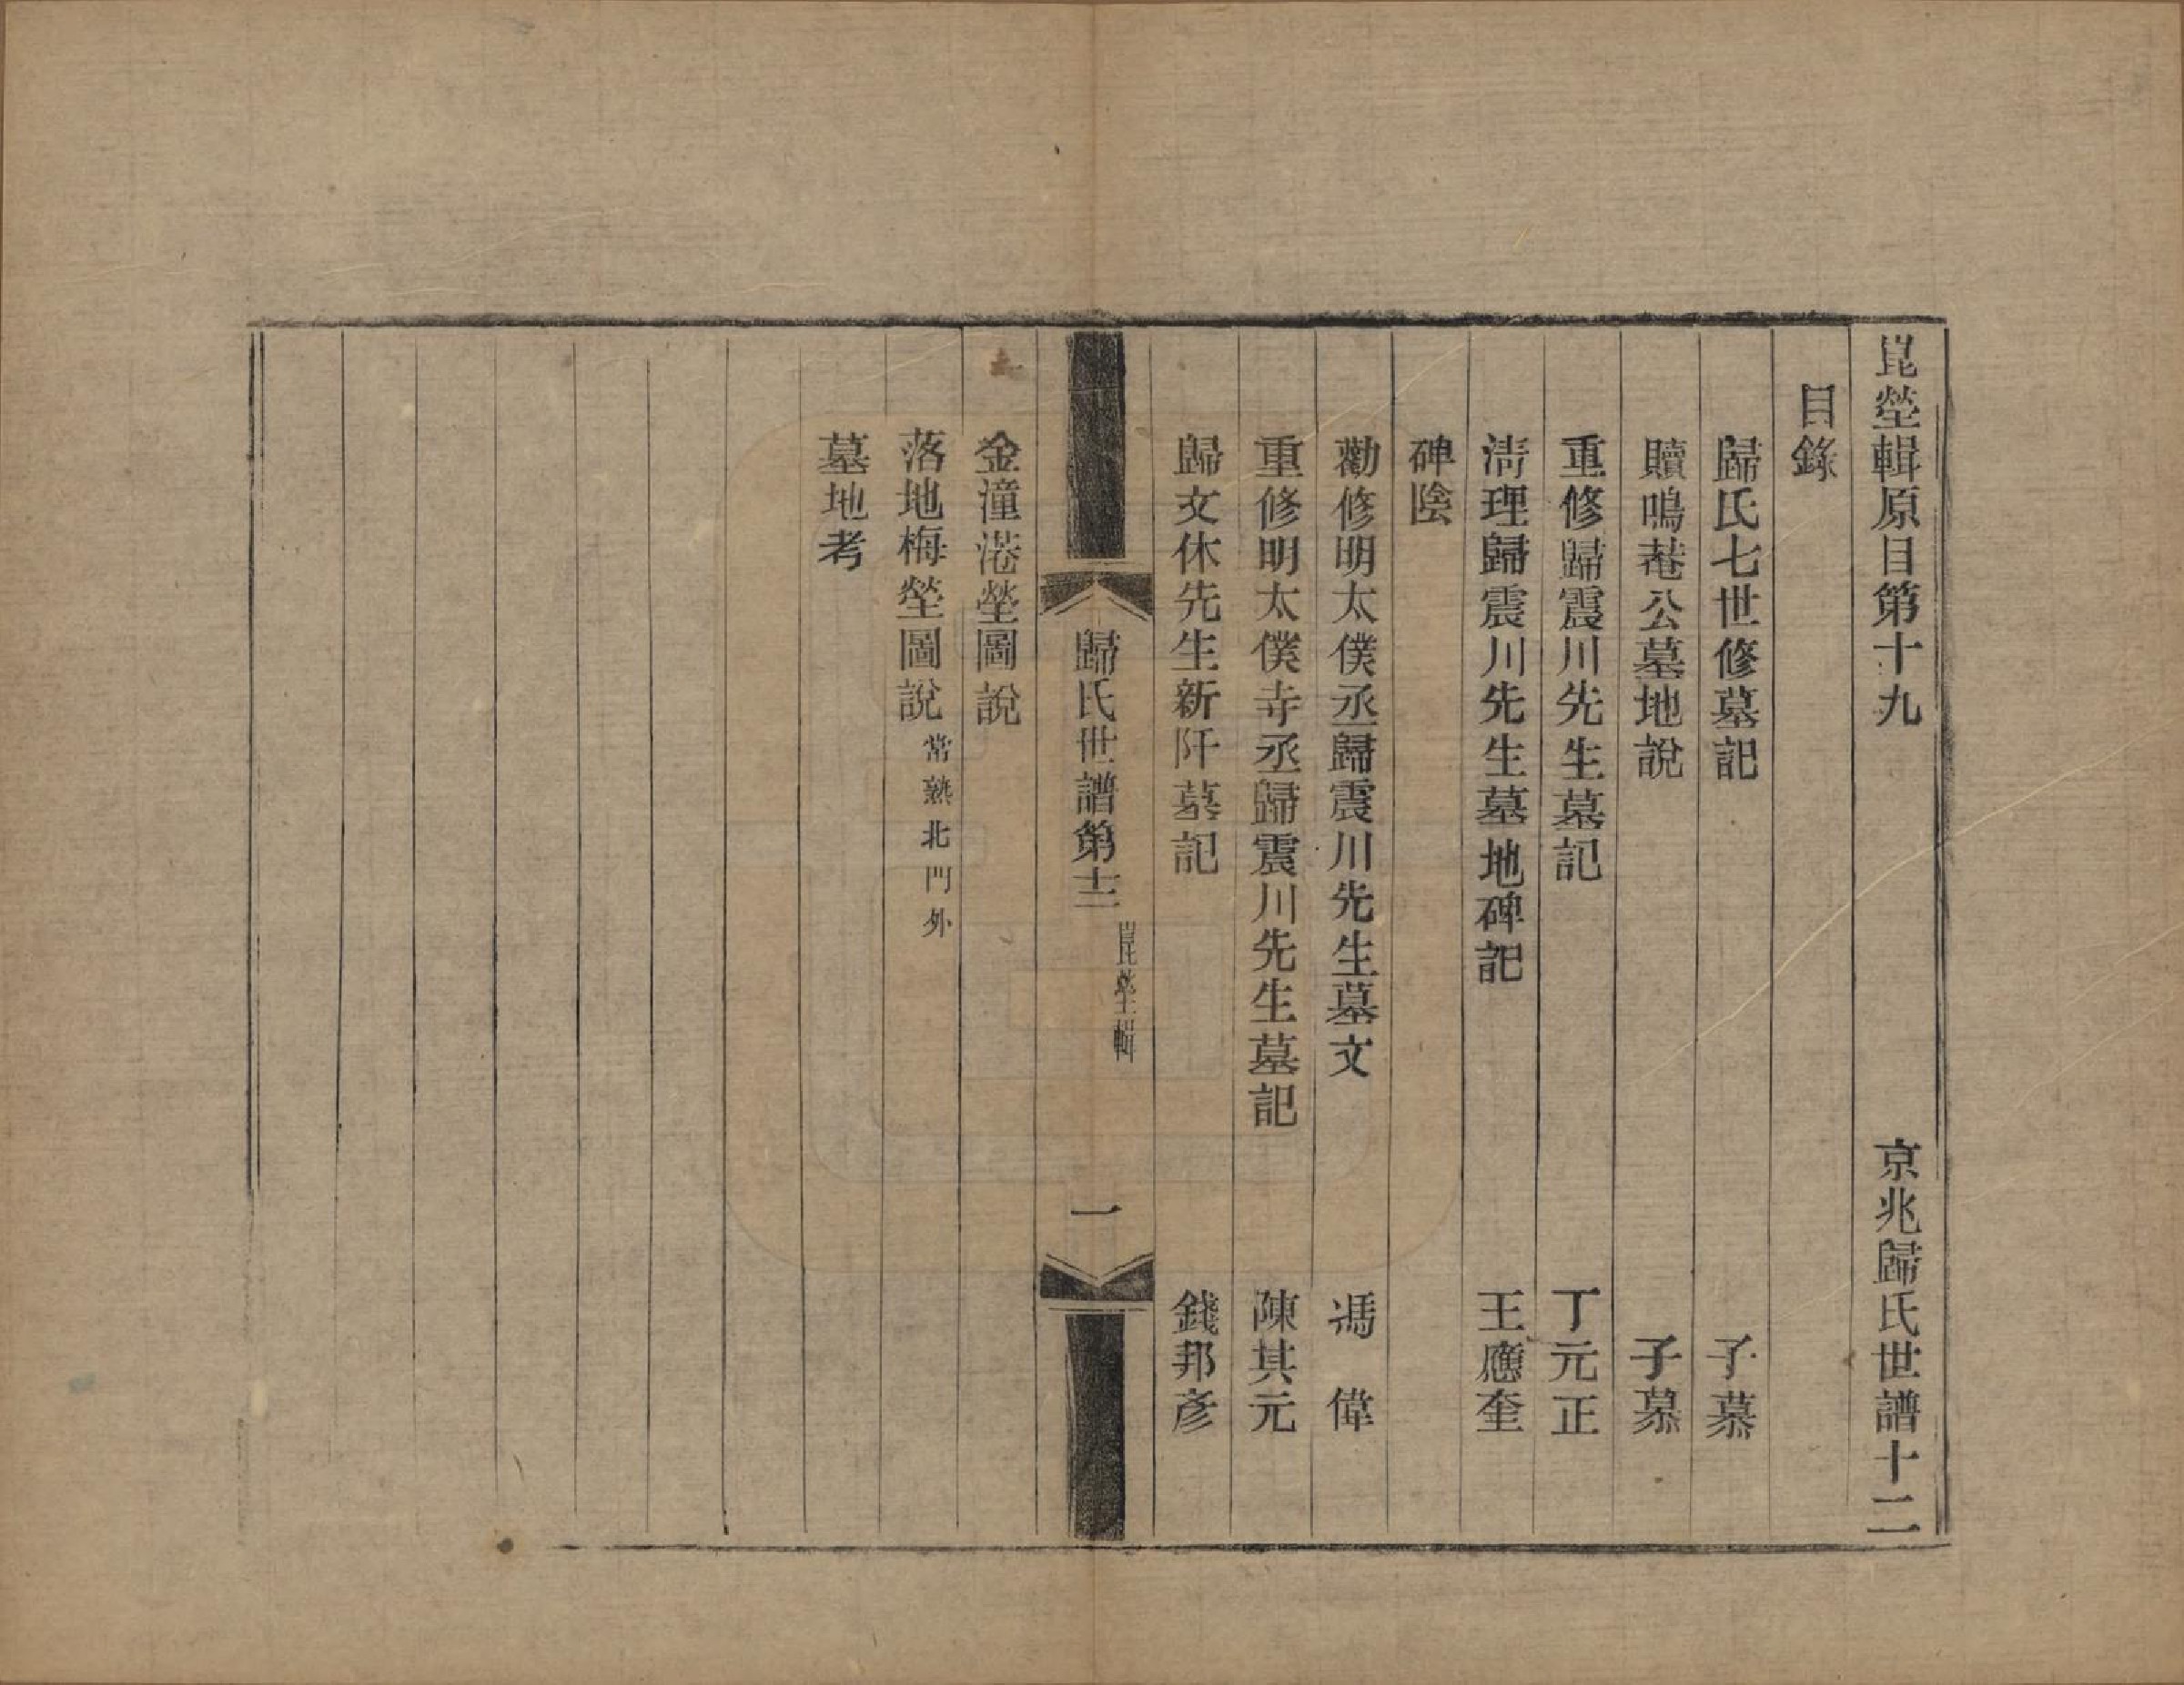 崑塋輯原目第十九　京兆歸氏世譜十二
目錄
歸氏七世修墓記　子慕
贖鳴菴公墓地說　子慕
重修歸震川先生墓記　丁元正
清理歸震川先生墓地碑記　王應奎
碑陰
勸修明太僕丞歸震川先生墓文　馮偉
重修明太僕寺丞歸震川先生墓記　陳其元
歸文休先生新阡墓記　錢邦彥
歸氏世譜第十二　崑塋輯　一
金潼港塋圖說
落地梅塋圖說常熟北門外
墓地考